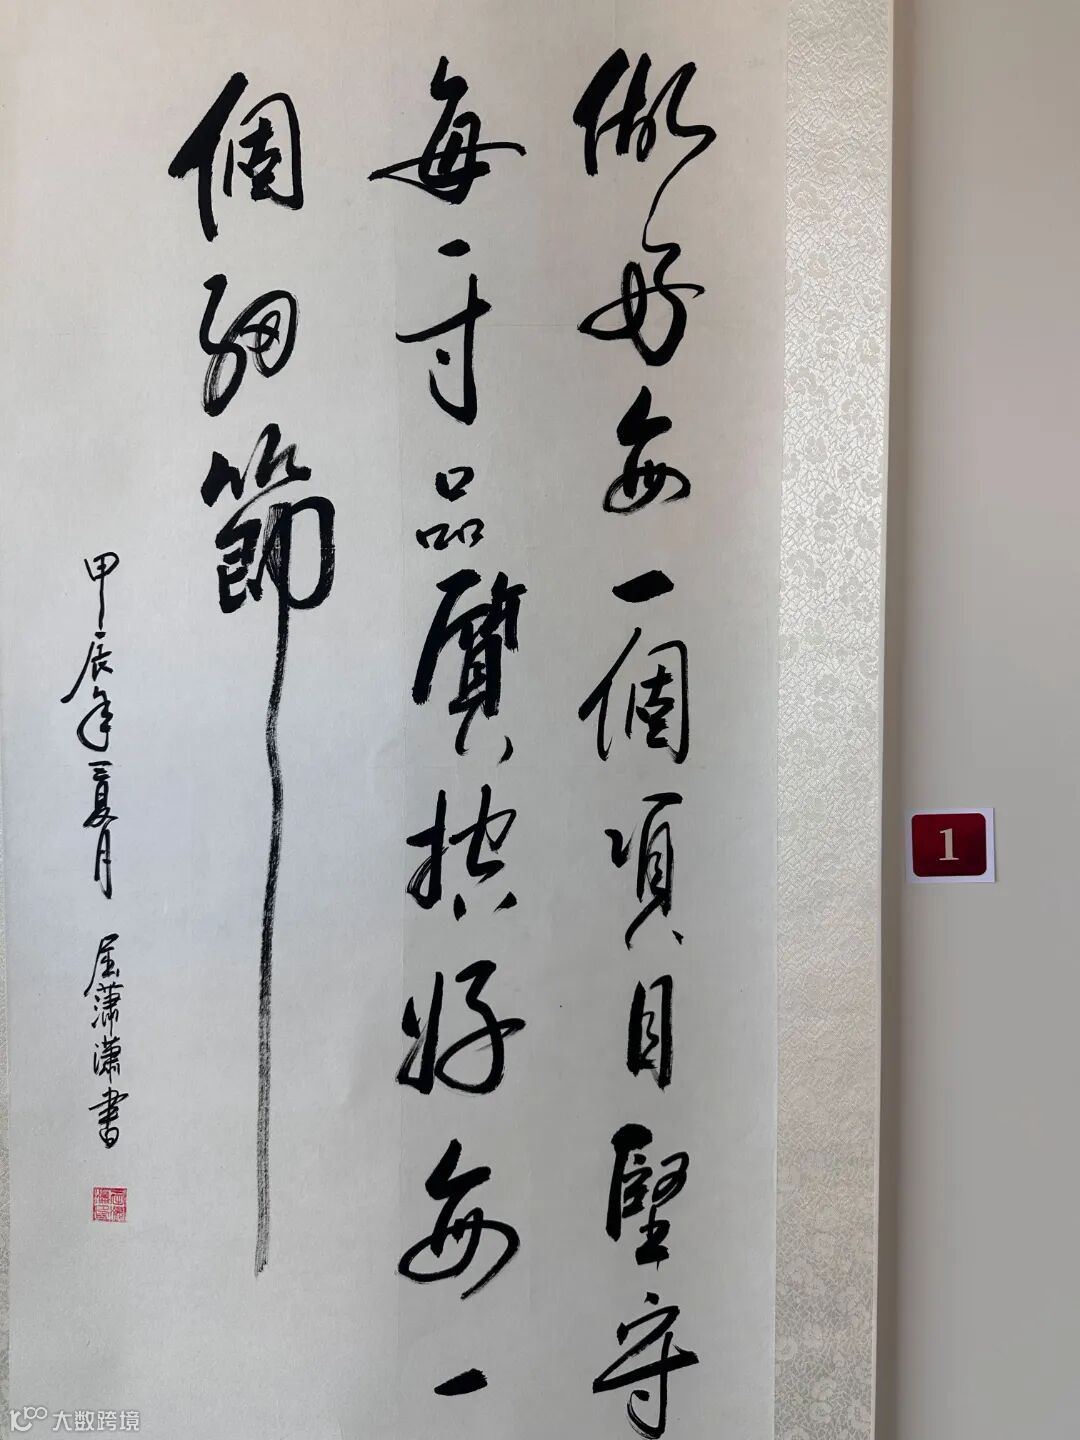 做好每一個項目堅守
每一寸品質控好每一
個細節
甲辰年夏月 屈蕭瀟書
1
大数跨境